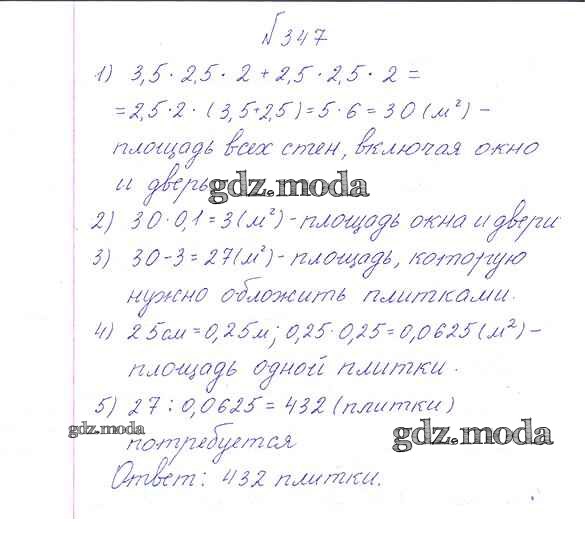 №347
1) 3,5 · 2,5 · 2 + 2,5 · 2,5 · 2 =
= 2,5 · 2 · (3,5+2,5) = 5 · 6 = 30 (м²) –
площадь всех стен, включая окно
и дверь
gdz.moda
2) 30 · 0,1 = 3 (м²) – площадь окна и двери
3) 30 – 3 = 27 (м²) – площадь, которую
нужно обложить плитками.
4) 25см = 0,25м; 0,25 · 0,25 = 0,0625 (м²) –
площадь одной плитки.
5) 27 : 0,0625 = 432 (плитки)
gdz.moda
gdz.moda
потребуется
Ответ: 432 плитки.